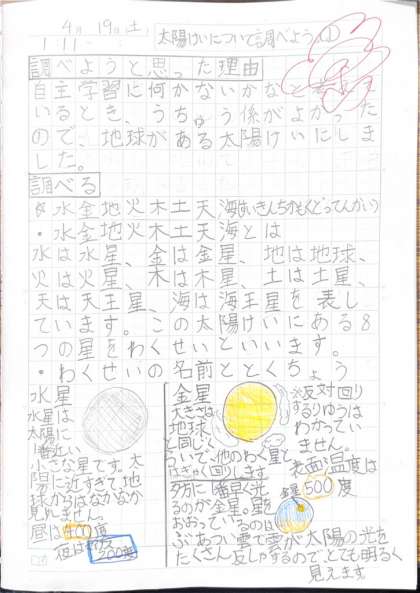 4月 19日(土)
太陽けいについて調べよう(1)
調べようと思った理由
自主学習に何かないかなと考えて
いるとき、うちゅう係がよかった
ので、地球がある太陽けいにしま
した。
調べる
☆水金地火木土天海(すいきんちかもくどってんかい)
・水金地火木土天海とは
水は水星、金は金星、地は地球、
火は火星、木は木星、土は土星、
天は天王星、海は海王星を表し
ています。この太陽けいにある8
つの星をわくせいといいます。
・わくせいの名前ととくちょう
水星
水星は
太陽に
1番近い
小さな星です。太
陽に近すぎて地
球からはなかなか
見れません。
昼は400度
夜は
200度
金星
大きさは
地球
と同じく
らいで、他のわく星と
はぎゃく回りします
※反対回り
するりゆうは
わかってい
ません。
表面温度は
500度
夕方に1番早く光
るのが金星。星を
おおっているのは
ぶあつい雲で雲が太陽の光を
たくさん反しゃするのでとても明るく
見えます
金星